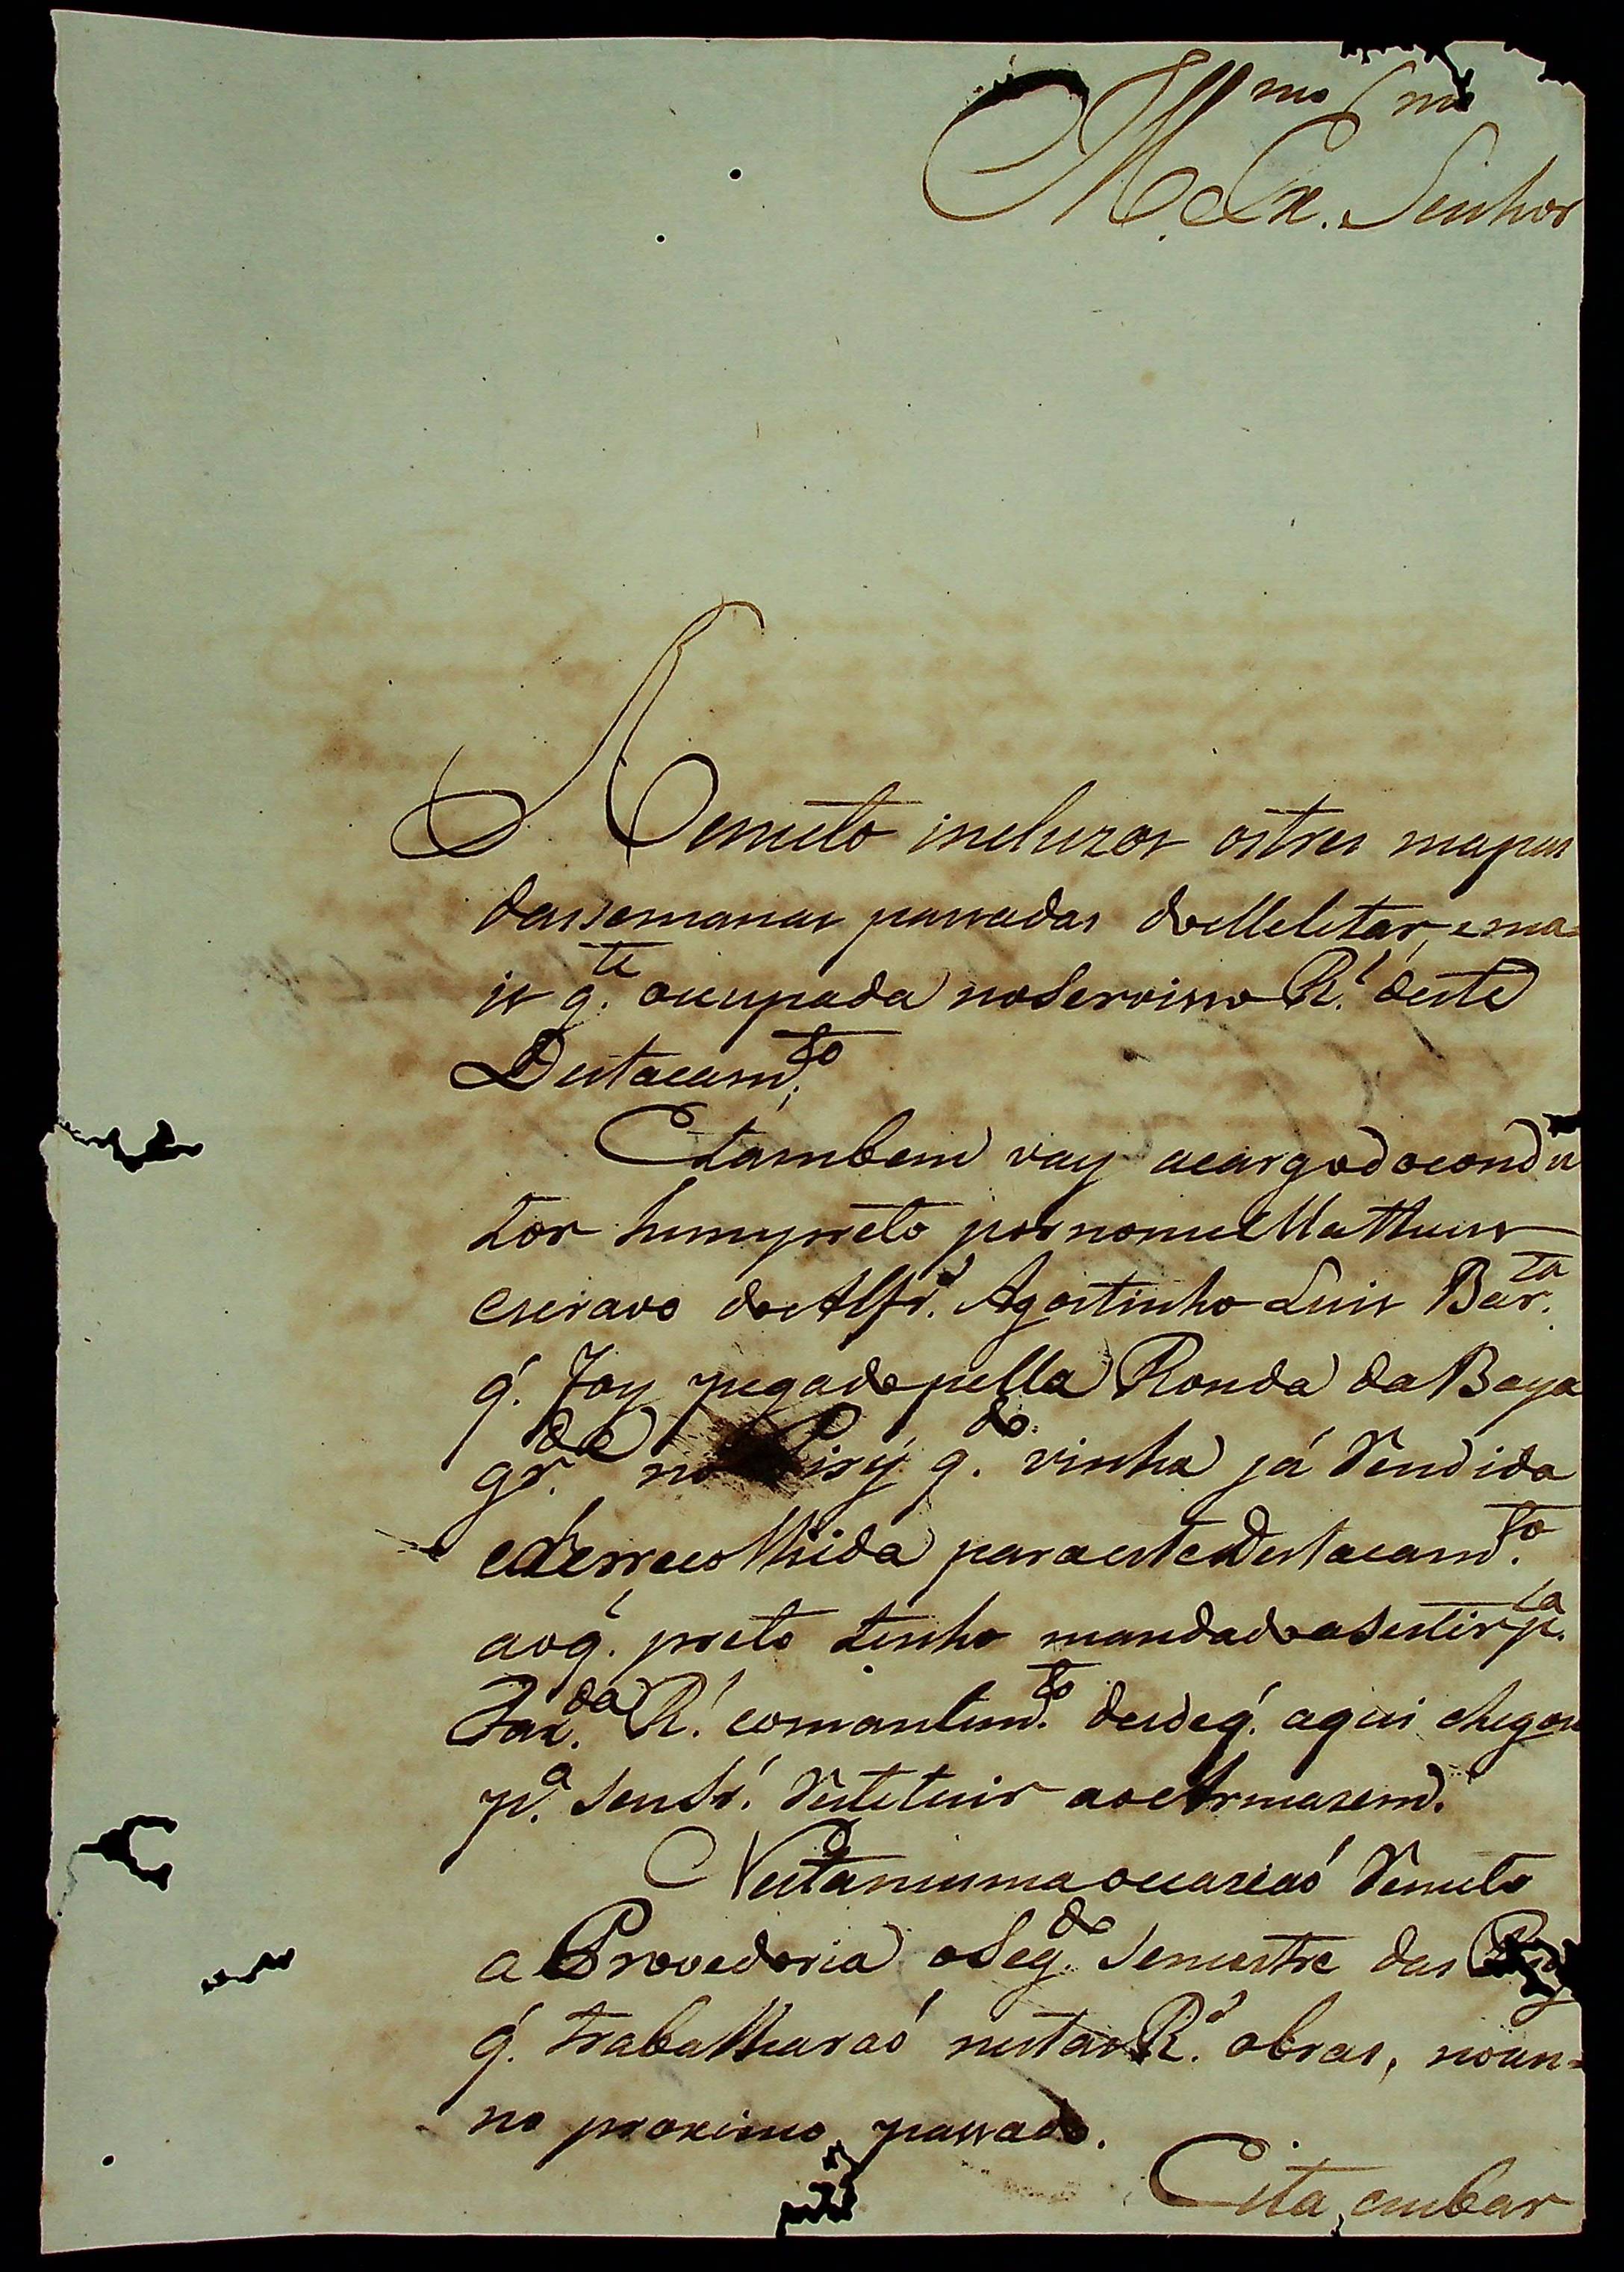 Ill.mo Ex.mo
M. Senhor
Remeto incluzos os tres mapas
das semanas passadas do Meletar, e ma=
is g.te occupada no Servisso R.l deste
Destacam.to
E tambem vay a cargo do condu
tor hum preto por nome Mattheus
escravo do Alfr.s Agostinho Luis Bar.ta
q. foy pegado pella Ronda da Baya
gr.de no Piry q.do vinha já Rendida
e derrecolhida para este Destacam.to
ao q. preto tenho mandado asestir p.la
Faz.da R.l comantim.to desde q. aqui chegou
p.a seu Sr. Restetuir ao Armazem.
Nesta mesma occaziaõ Remeto
a Provedoria o Seg.do Semestre das
q. trabalharaõ nestas R.s obras, no an=
no proximo passado.
Esta, embar